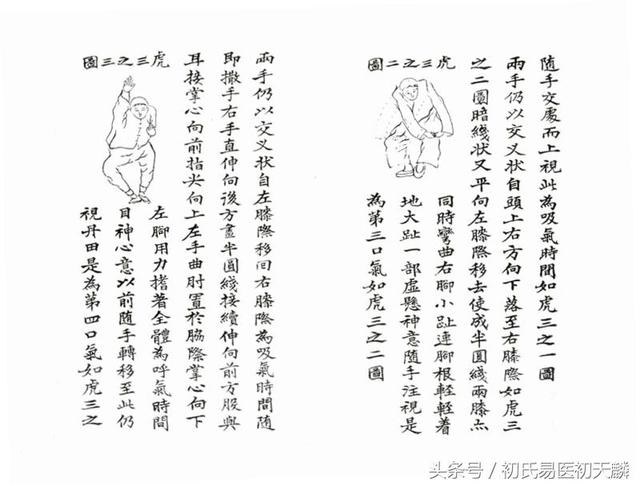 随手交處而上視此為吸氣時間如虎三之一圖
兩手仍以交叉状自頭上右方向下落至右膝際如虎三
之二圖暗綫状又平向左膝際移去使成半圓綫兩膝点
虎三之二圖
同時彎曲右腳小趾連腳根輕輕着
地大趾一部虛懸神意随手注視是
為第三口氣如虎三之二圖
兩手仍以交叉状自左膝際移回右膝際為吸氣時間随
即撒手右手直伸向後方畫半圓綫接續伸向前方股與
耳接掌心向前指尖向上左手曲肘置於脇際掌心向下
虎三之三圖
左腳用力撐著全體為呼氣時間
目神心意以前随手轉移至此仍
視丹田是為第四口氣如虎三之
头条号 / 初氏易医初天麟